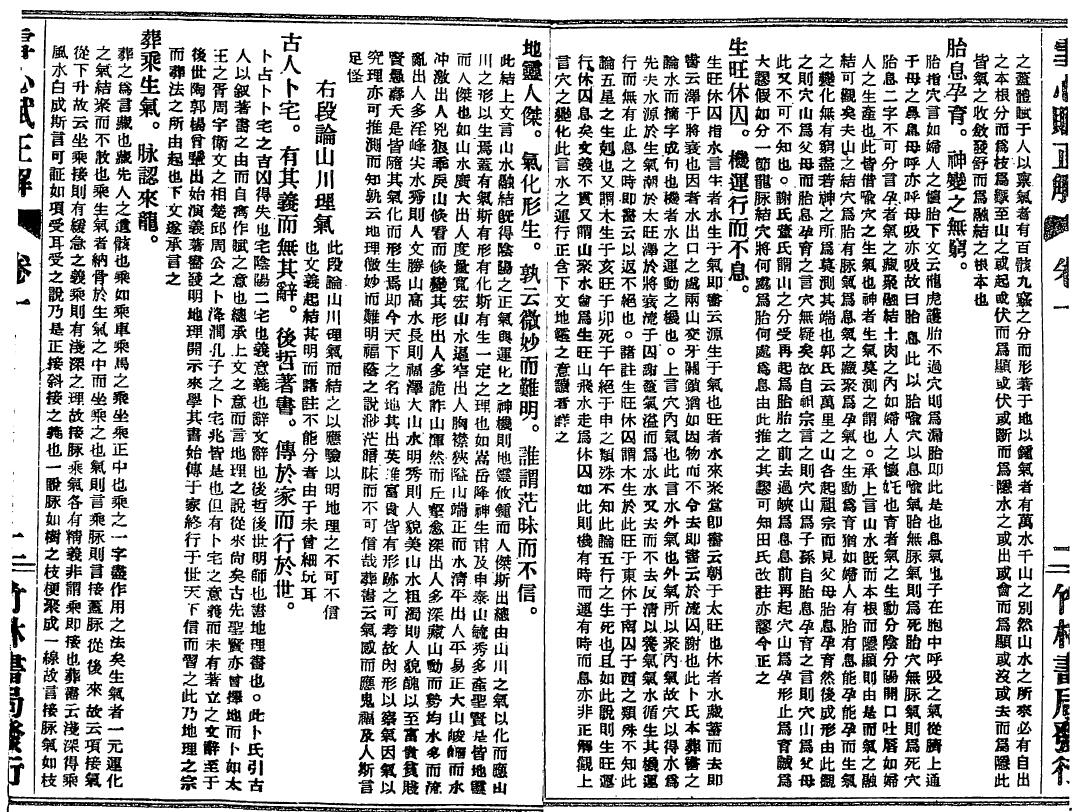 雪心賦正解　卷一　二　竹林書局發行
之蓋體賦于人以稟氣者有百骸九竅之分而形著于地以鍾氣者有萬水千山之別然山水之所來必有自出
之本根分而爲枝爲幹至山之或起或伏而爲顯或伏或斷而爲隱水之或出或會而爲顯或沒或去而爲隱此
皆氣之收斂發舒而爲融結之根本也
胎息孕育。神變之無窮。
胎指穴言如婦人之懷胎下文云龍虎護胎不過穴則爲漏胎即此是也息氣也子在胞中呼吸之氣從臍上通
于母之鼻息母呼亦呼母吸亦吸故曰胎息此以胎喻穴以息喻氣胎無脉氣則爲死胎穴無脉氣則爲死穴
胎息二字不可分言者孕者氣之藏聚融結土肉之內如婦人之懷妊也育者氣之生動分陰分陽開口吐唇如婦
人之生產也此皆借喻穴之生氣也神者生氣莫測之謂也。承上言山水旣而本根而隱顯則由是而氣之融
結可觀矣夫山之結穴爲胎有脉氣爲息氣之藏聚爲孕氣之生動爲育猶如婦人有胎有息能孕而生氣
之變化無有窮盡若神之所爲莫測其端也郭氏云萬里之山各起祖宗而見父母胎息孕育然後成形由此觀
之則穴山爲父母而胎息孕育之言穴無疑矣故自祖宗言之則穴山爲子孫自胎息孕育言之則穴山爲父母
此又不可不知也。謝氏董氏謂山之分受再起爲胎胎之前去過峽爲息息前再起穴山爲孕形止爲育誠爲
大謬假如分一節龍脉結穴將何處爲胎何處爲息由此推之其謬可知田氏改註亦謬今正之
生旺休囚。機運行而不息。
生旺休囚指水言生者水生于氣即書云源生于氣也旺者水來聚堂即書云朝于太旺也休者水藏蓄而去即
書云澤于將衰也囚者水出口之處兩山交牙關鎖猶如囚物而不令去即書云於流囚謝也此卜氏本葬書之
論水而摘字成句也機者水之運動之機也。上言穴內氣也此言水外氣也外氣所以聚內氣故穴以得水爲
先夫水源於生氣潮於太旺澤於將衰流于囚謝蓋氣溢而爲水水又去而不去反清以養氣氣水循生其機運
行而無有止息之時即書云以返不絕也。諸註生旺休囚謂木生於此旺于東休于南囚于西之類殊不知此
論五星之生剋也又謂木生于亥旺于卯死于午絕于申之類殊不知此論五行之生死也且如此說則生旺運
行休囚息矣文義不貫又謂山聚水會爲生旺山飛水走爲休囚如此則機有時而運有時而息亦非正解觀上
言穴之變化此言水之運行正含下文地靈之意讀者詳之
地靈人傑。氣化形生。孰云微妙而難明。誰謂茫昧而不信。
此結上文言山水融結旣得陰陽之正氣與運化之神機則地靈攸傾而人傑斯出總由山川之氣以化而應山
川之形以生焉蓋有氣斯有形有化斯有生一定之理也如嵩岳降神生甫及申泰山毓秀多產聖賢是皆地靈
而人傑也如山水廣大出人度量寬宏山水逼窄出人胸襟狹隘山端正而水清平出人平易正大山峻嶒而水
冲激出人兇狠乖戾山倏窅而倏變其形出人多詭詐山渾然而丘壑愈深出人多深藏山動而勢均水多而流
亂出人多淫峰尖水秀則人文勝山高水長則福澤大山水明秀則人貌美山水粗濁則人貌醜以至富貴貧賤
賢愚壽夭是皆隨其氣化而形生焉即今天下之名地其出英雄富貴皆有形跡之可考故因形以察氣因氣以
究理亦可推測而知孰云地理微妙而難明福蔭之說渺茫暗昧而不可信哉葬書云氣感而應鬼福及人斯言
足怪
右段論山川理氣　此段論山川理氣而結之以應驗以明地理之不可不信
也文義起結甚明而諸註不能分者由于未曾細玩耳
古人卜宅。有其義而無其辭。後哲著書。傳於家而行於世。
卜占卜卜宅之吉凶得失也宅陰陽二宅也義意義也辭文辭也後哲後世明師也書地理書也。此卜氏引古
人以叙著書之由而自寓作賦之意也總承上文之意而言地理之說從來尚矣古先聖賢亦曾擇地而卜如太
王之胥周字衛文之相楚邱周公之卜洛澗孔子之卜宅兆皆是也但有卜宅之意義而未有著立之文辭至于
後世陶郭楊曾輩出始演義著書發明地理開示來學其書始傳于家終行于世天下信而習之此乃地理之宗
而葬法之所由起也下文遂承言之
葬乘生氣。脉認來龍。
葬之爲言藏也藏先人之遺骸也乘如乘車乘馬之乘坐乘正中也乘之一字盡作用之法矣生氣者一元運化
之氣結聚而不散也乘生氣者納骨於生氣之中而坐乘之也氣則言乘脉則言接蓋脉從後來故云項接氣
從下升故云坐乘接則有緩急之義乘則有淺深之理故接脉乘氣各有精義非謂乘即接也葬書云淺深得乘
風水自成斯言可証如項受耳受之說乃是正接斜接之義也一股脉如樹之枝梗聚成一線故言接脉氣如枝
雪心賦正解　卷一　二　竹林書局發行